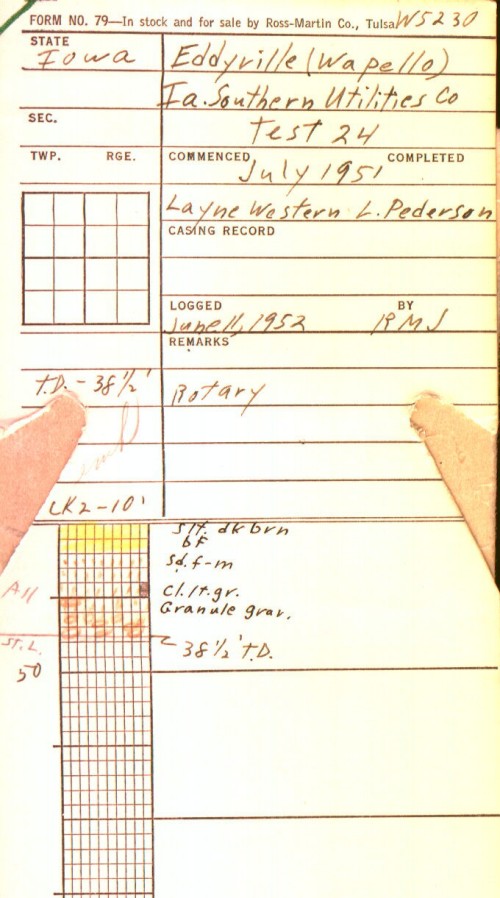 FORM NO. 79—In stock and for sale by Ross-Martin Co., Tulsa W5230
STATE
Iowa
Eddyville (Wapello)
Ia. Southern Utilities Co
SEC.
Test 24
TWP. RGE.
COMMENCED COMPLETED
July 1951
Layne Western L. Pederson
CASING RECORD
LOGGED BY
June 11, 1952 RMJ
REMARKS
T.D. - 38 1/2'
Rotary
CK2-10'
Slt. dk brn
bf
Sd. f-m
Cl. lt. gr.
All
Granule grav.
St. L.
38 1/2' T.D.
50